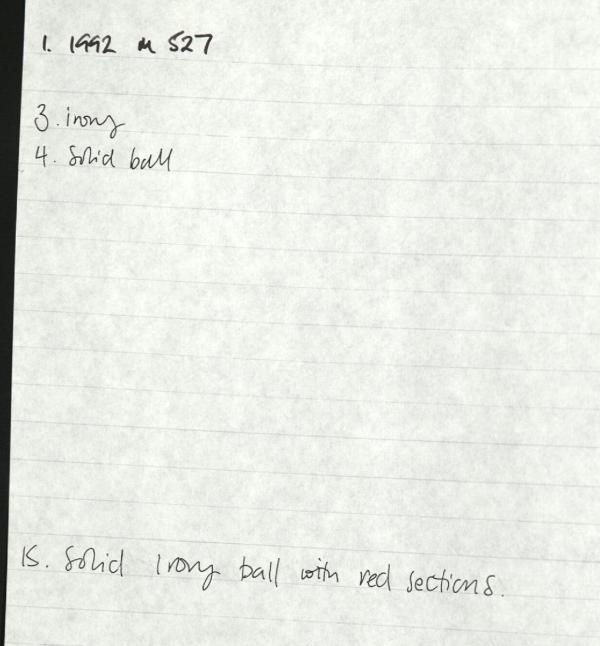 1. 1992 M 527
3. ivory
4. Solid ball
15. Solid ivory ball with red sections.